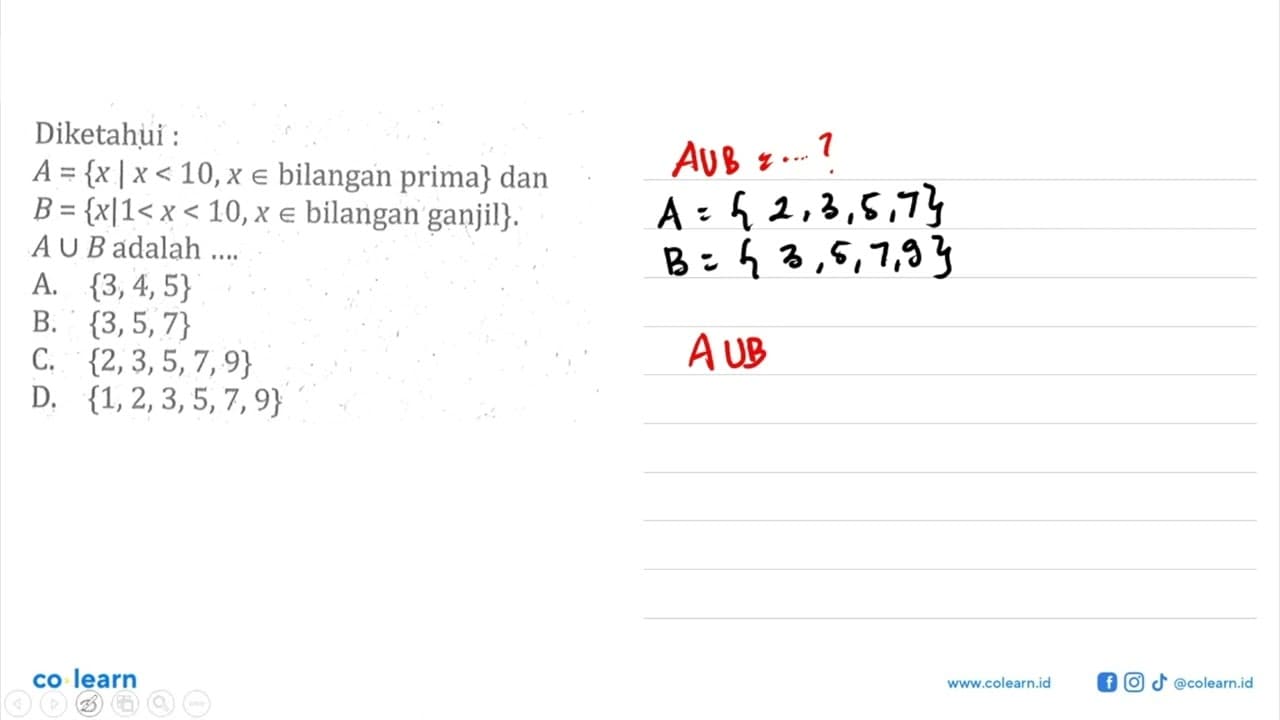 Diketahui :
A = {x | x < 10, x ∈ bilangan prima} dan
B = {x|1< x < 10, x ∈ bilangan ganjil}.
A ∪ B adalah ....
A. {3, 4, 5}
B. {3, 5, 7}
C. {2, 3, 5, 7, 9}
D. {1, 2, 3, 5, 7, 9}
A∪B = ... ?
A = { 2, 3, 5, 7}
B = { 3, 5, 7, 9}
A ∪ B
co learn
www.colearn.id
@colearn.id